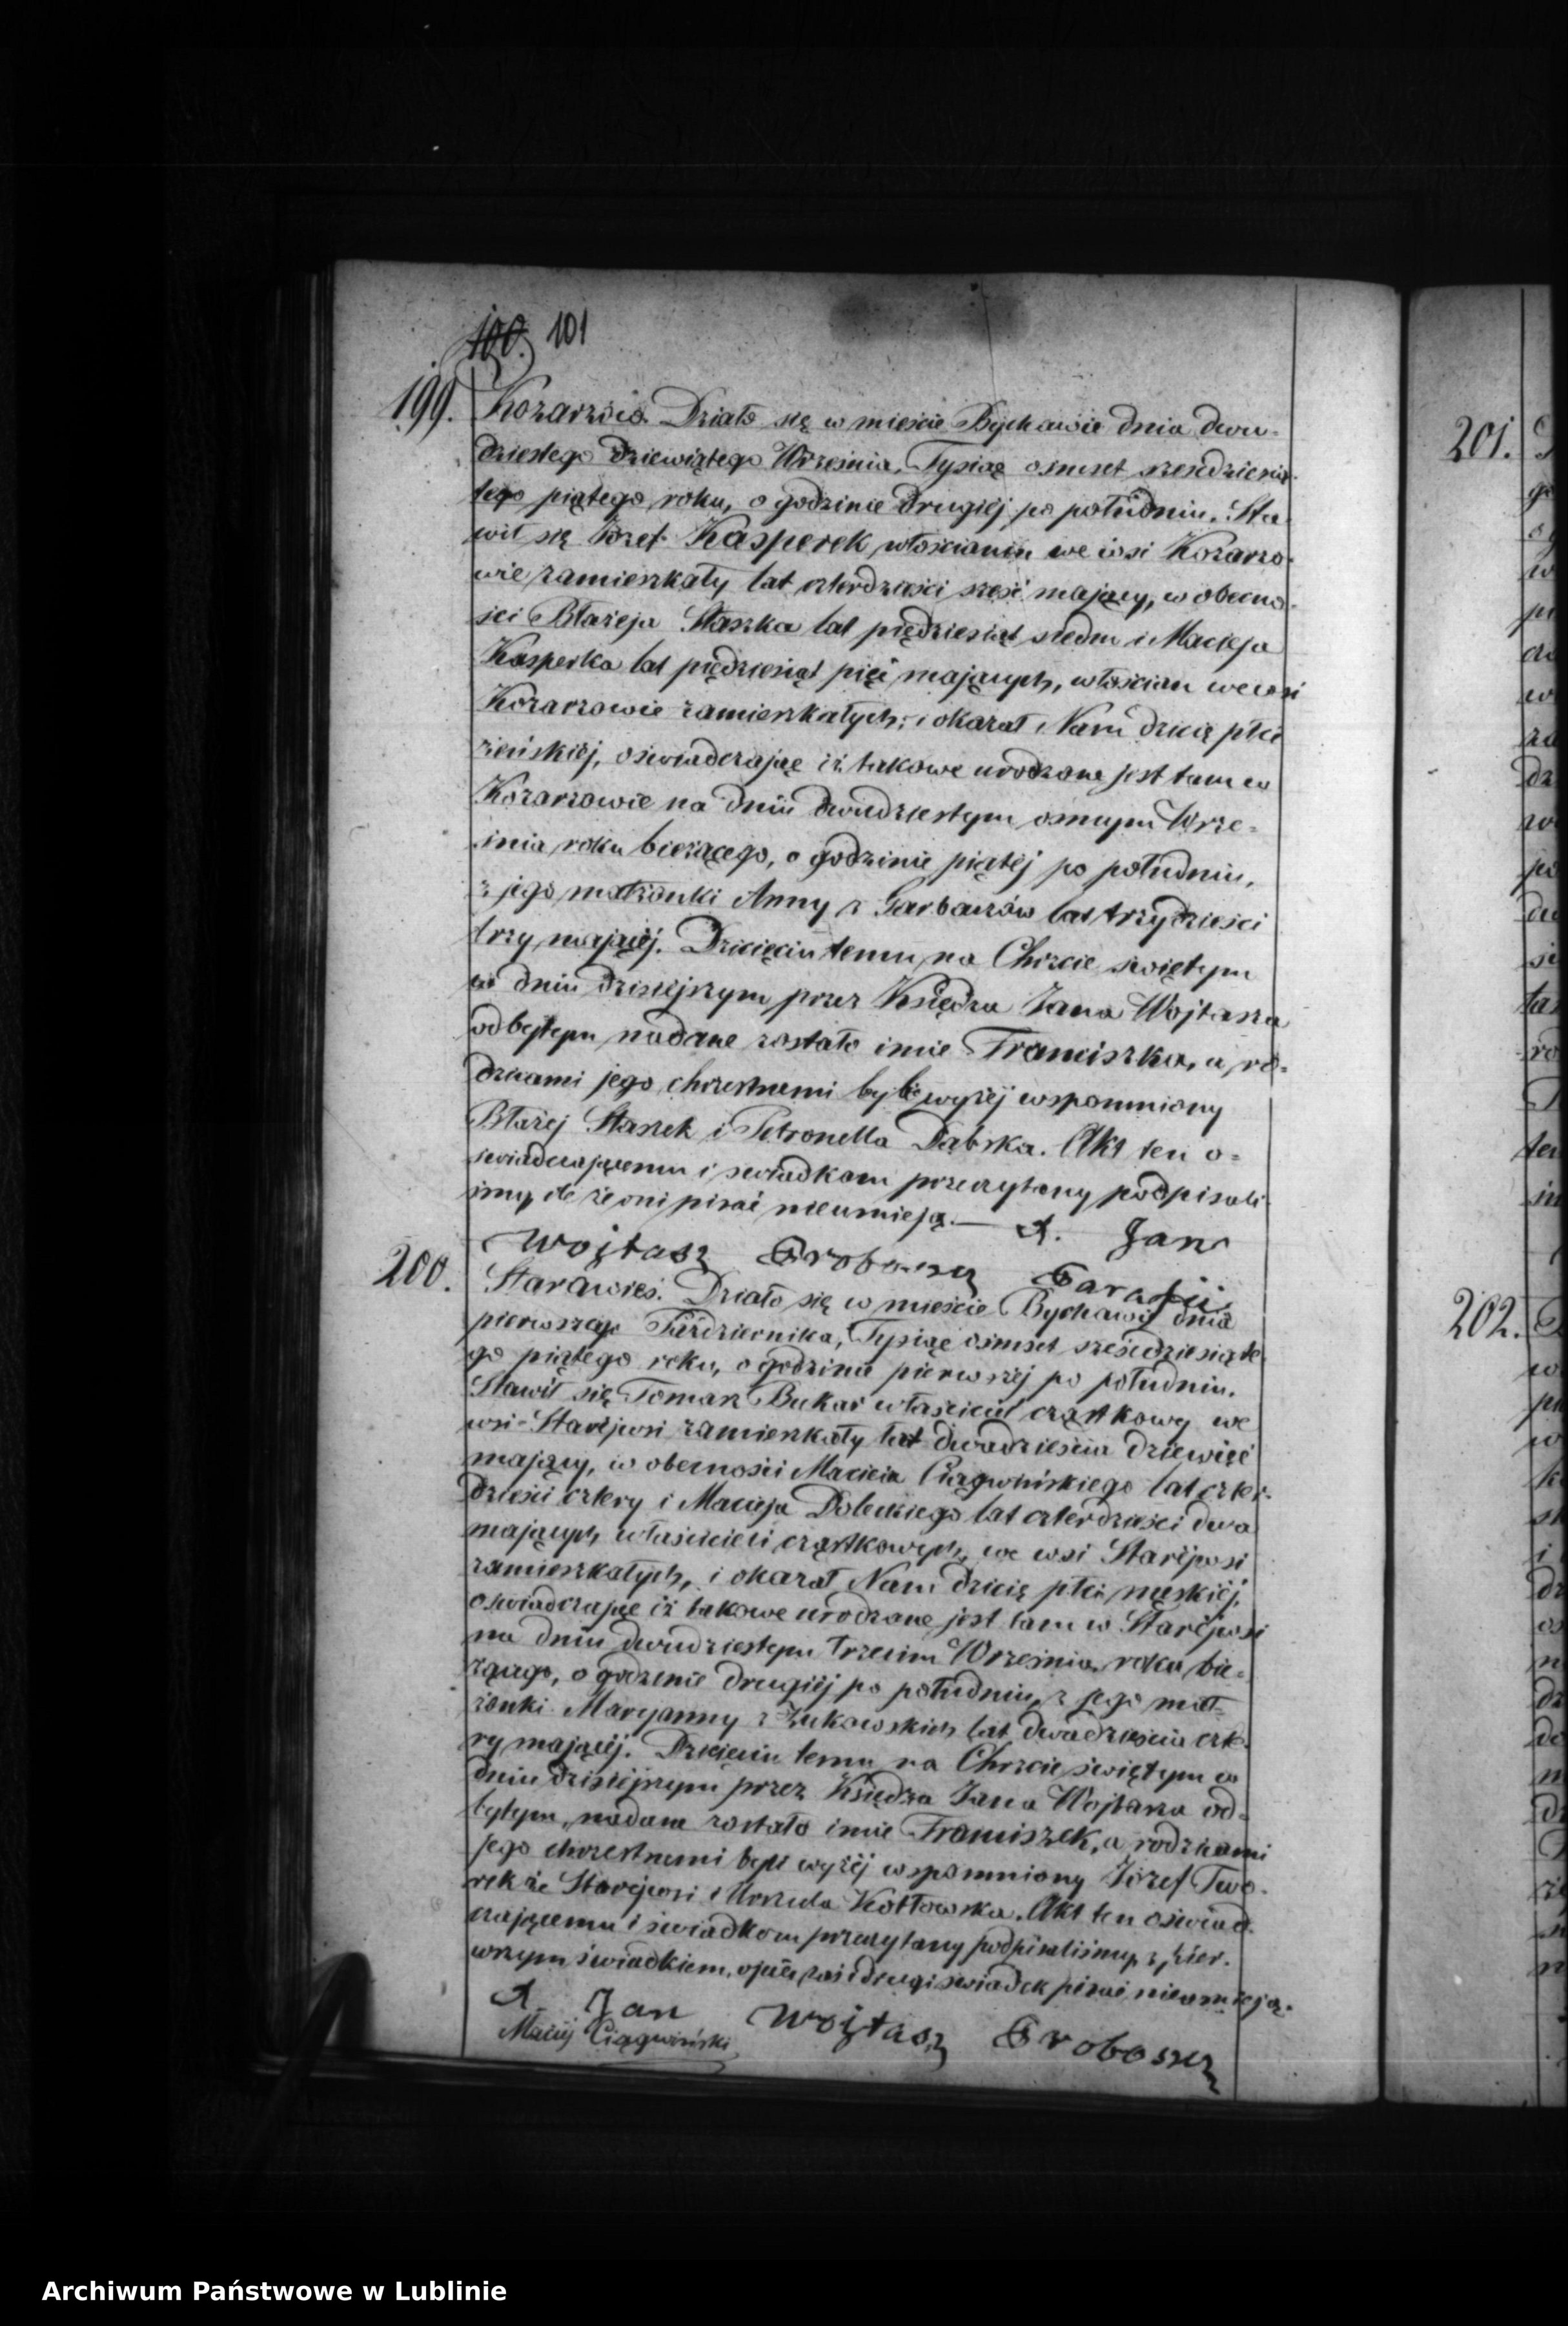 100. 101
199. Kozarzów. Działo się w mieście Bychawie dnia dwu-
dziestego dziewiątego Września, Tysiąc ośmset sześćdziesią-
tego piątego roku, o godzinie drugiéj po południu. Sta-
wił się Józef Kasperek włościanin we wsi Kozarzo-
wie zamieszkały lat czterdzieści sześć mający, w obecno-
ści Błażeja Staszka lat pięćdziesiąt siedm i Macieja
Kasperka lat pięćdziesiąt pięć mających, włościan we wsi
Kozarzowie zamieszkałych; i okazał Nam dziecię płci
żeńskiéj, oświadczając iż takowe urodzone jest tam w
Kozarzowie na dniu dwudziestym osmym Wrze-
śnia roku bieżącego, o godzinie piątéj po południu,
z jego małżonki Anny z Garbaczów lat trzydzieści
trzy mającéj. Dziecięciu temu na Chrzcie świętym
w dniu dzisiejszym przez Księdza Jana Wojtasza
odbytym nadane zostało imie Franciszka, a ro-
dzicami jego chrzestnemi byli wyżéj wspomniony
Błażej Staszek i Petronella Dąbska. Akt ten o-
świadczającemu i świadkom przeczytany podpisali-
śmy ile że oni pisać nieumieją.— X. Jan
Wojtasz Proboszcz Parafii.
200. Starawieś. Działo się w mieście Bychawie dnia
pierwszego Października, Tysiąc ośmset sześćdziesiąte-
go piątego roku, o godzinie pierwszéj po południu.
Stawił się Tomasz Bukar właściciel cząstkowy we
wsi Staréjwsi zamieszkały lat dwadzieścia dziewięć
mający, w obecności Macieia Ciągwińskiego lat czter-
dzieści cztery i Macieja Doleckiego lat czterdzieści dwa
mających, właścicieli cząstkowych, we wsi Staréjwsi
zamieszkałych, i okazał Nam dziecię płci męskiéj,
oświadczając iż takowe urodzone jest tam w Staréjwsi
na dniu dwudziestym trzecim Września, roku bie-
żącego, o godzinie drugiéj po południu, z jego mał-
żonki Maryanny z Żukowskich lat dwadzieścia czte-
ry mającéj. Dziecięciu temu na Chrzcie świętym w
dniu dzisiejszym przez Księdza Jana Wojtasza od-
bytym, nadane zostało imie Franciszek, a rodzicami
jego chrzestnemi byli wyżéj wspomniony Józef Two-
rek ze Staréjwsi i Urszula Kotłowska. Akt ten oświad-
czającemu i świadkom przeczytany podpisaliśmy z pier-
wszym świadkiem, ojciec zaś i drugi świadek pisać nieumieją.
X. Jan Wojtasz Proboszcz
Maciéj Ciągwiński
201.
202.
Archiwum Państwowe w Lublinie